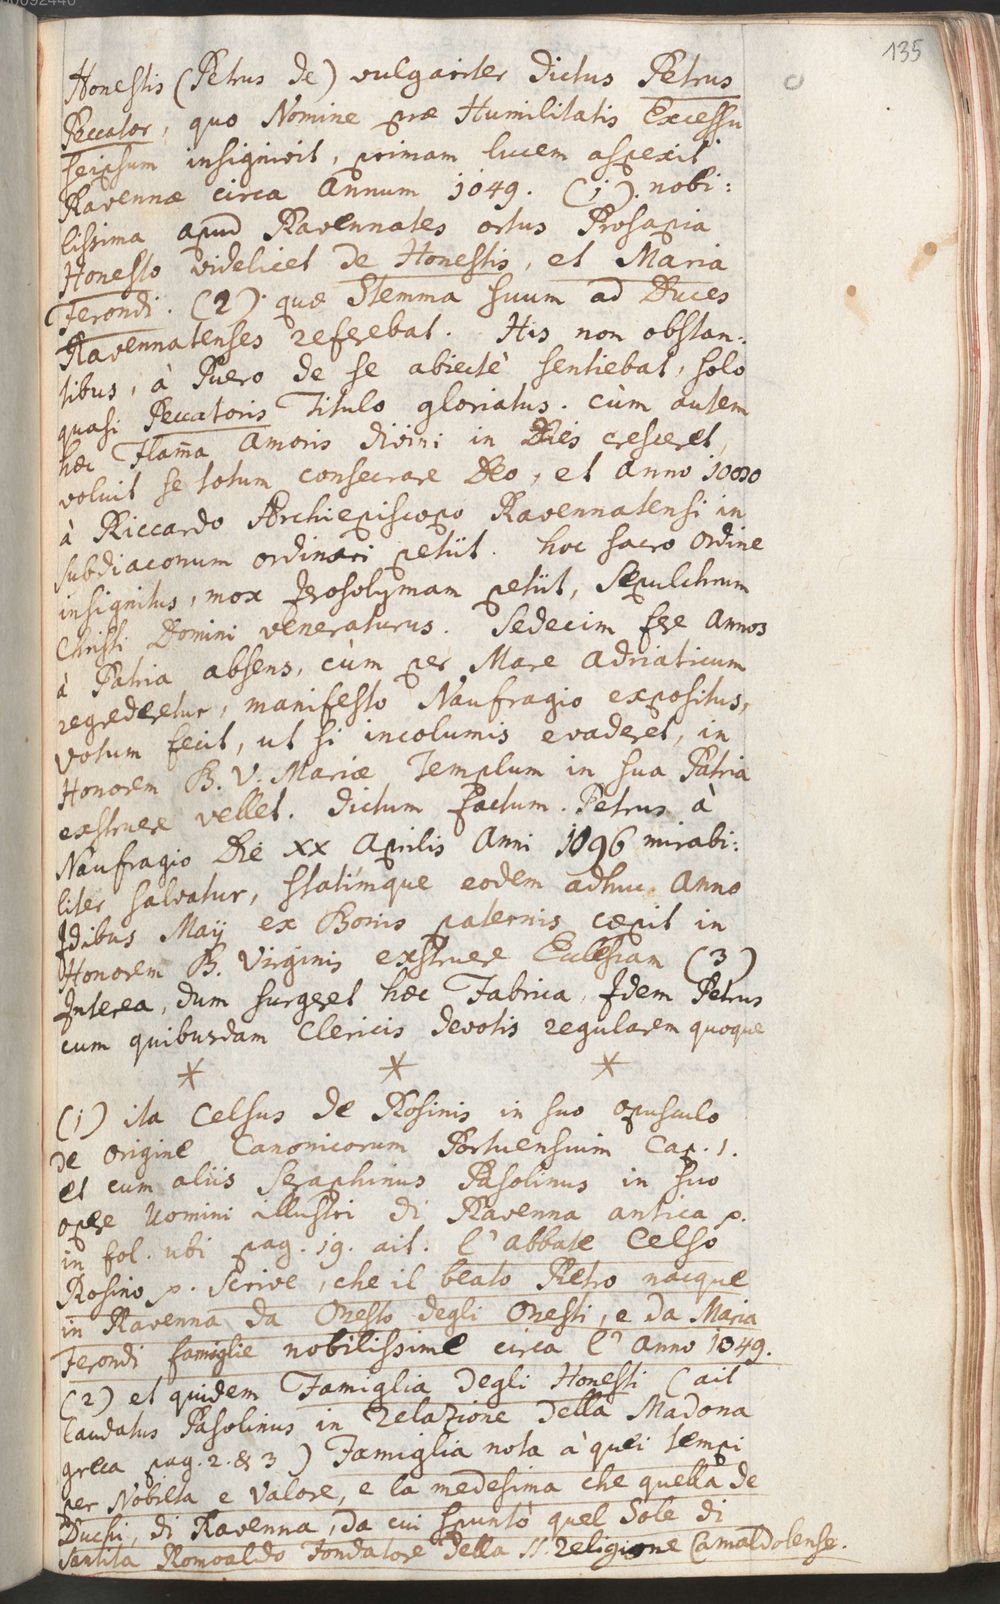 135
Honestis (Petrus de) vulgariter dictus Petrus
Peccator, quo Nomine præ Humilitatis Excessu
seipsum insignivit, primam lucem aspexit
Ravennæ circa Annum 1049. (1). nobi:
lissima apud Ravennates ortus Prosapia
Honesto videlicet de Honestis, et Maria
Ferondi. (2). quæ Stemma suum ad Duces
Ravennatenses referebat. His non obstan:
tibus, à Puero de se abiectè sentiebat, solo
quasi Peccatoris Titulo gloriatus. cùm autem
hæc Flam̄a Amoris divini in Dies cresceret,
voluit se totum consecrare Deo, et Anno
à Riccardo Archiepiscopo Ravennatensi in
subdiaconum ordinari petiit. hoc sacro ordine
insignitus, mox Jerosolymam petiit, Sepulchrum
Christi Domini veneraturus. Sedecim fere Annos
à Patria absens, cùm per Mare Adriaticum
regrederetur, manifesto Naufragio expositus,
votum fecit, ut si incolumis evaderet, in
Honorem B. V. Mariæ Templum in sua Patria
exstruere vellet. dictum factum. Petrus à
Naufragio Die XX Aprilis Anni 1096 mirabi:
liter salvatur, statimque eodem adhuc Anno
Idibus Maij ex Bonis paternis cæpit in
Honorem B. Virginis exstruere Ecclesiam (3)
Interea, dum surgeret hæc Fabrica, Idem Petrus
cum quibusdam Clericis devotis regularem quoque
* * *
(1) ita Celsus de Rosinis in suo opusculo
de origine Canonicorum Portuensium Cap. 1.
et cum aliis Seraphinus Pasolinus in suo
opere Uomini illustri di Ravenna antica p.
in fol. ubi pag. 19. ait. l'abbate Celso
Rosino p. scrive, che il beato Pietro nacque
in Ravenna da Onesto degli Onesti, e da Maria
Ferondi famiglie nobilissime circa l'Anno 1049.
(2) et quidem Famiglia degli Honesti (ait
laudatus Pasolinus in relazione della Madona
greca pag. 2. & 3) Famiglia nota à quei tempi
per Nobilta e Valore, e la medesima che quella de
Duchi, di Ravenna, da cui spuntò quel Sole di
santita Romoaldo Fondatore della religione Camaldolense.